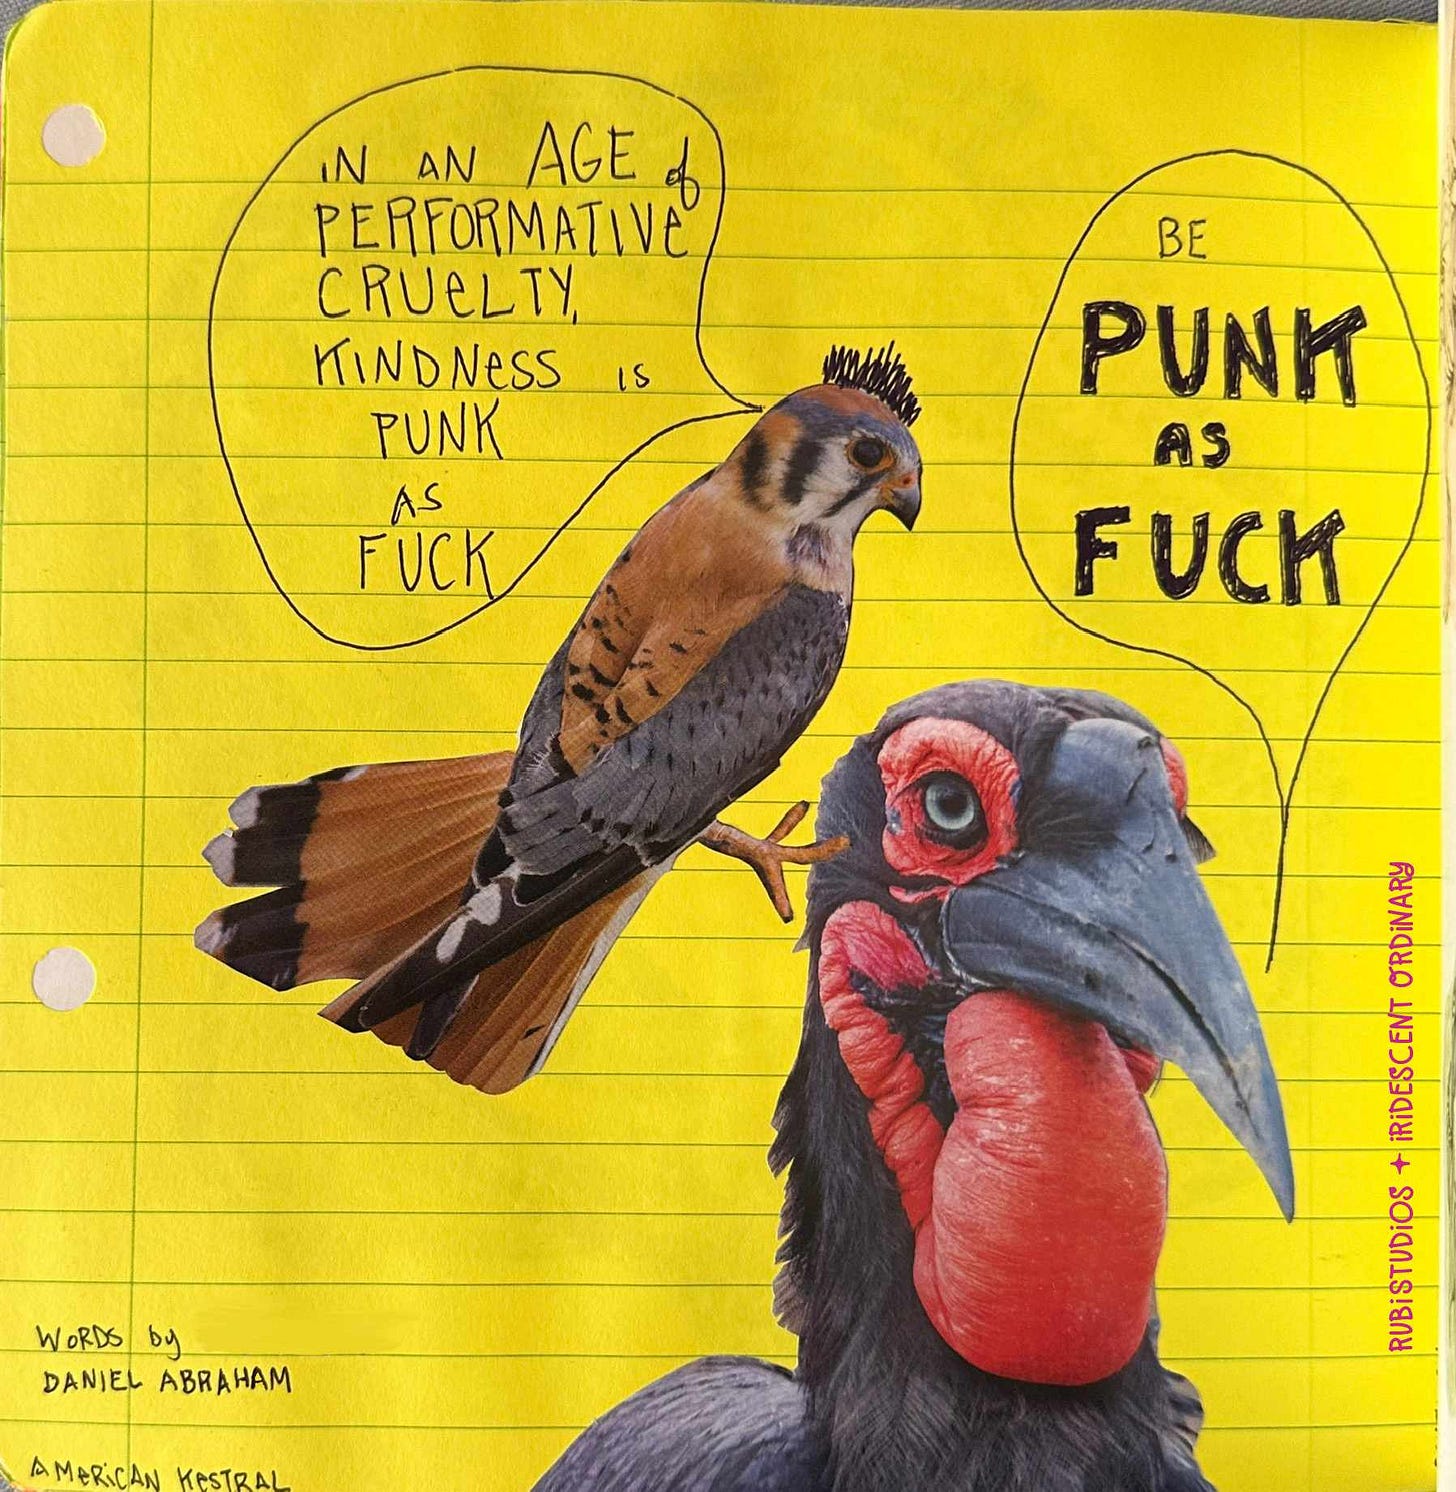 IN AN AGE of
PERFORMATIVE
CRUELTY,
KINDNESS IS
PUNK
AS
FUCK
BE
PUNK
AS
FUCK
WORDS by
DANIEL ABRAHAM
AMERICAN KESTRAL
RUBISTUDIOS + IRIDESCENT ORDINARY